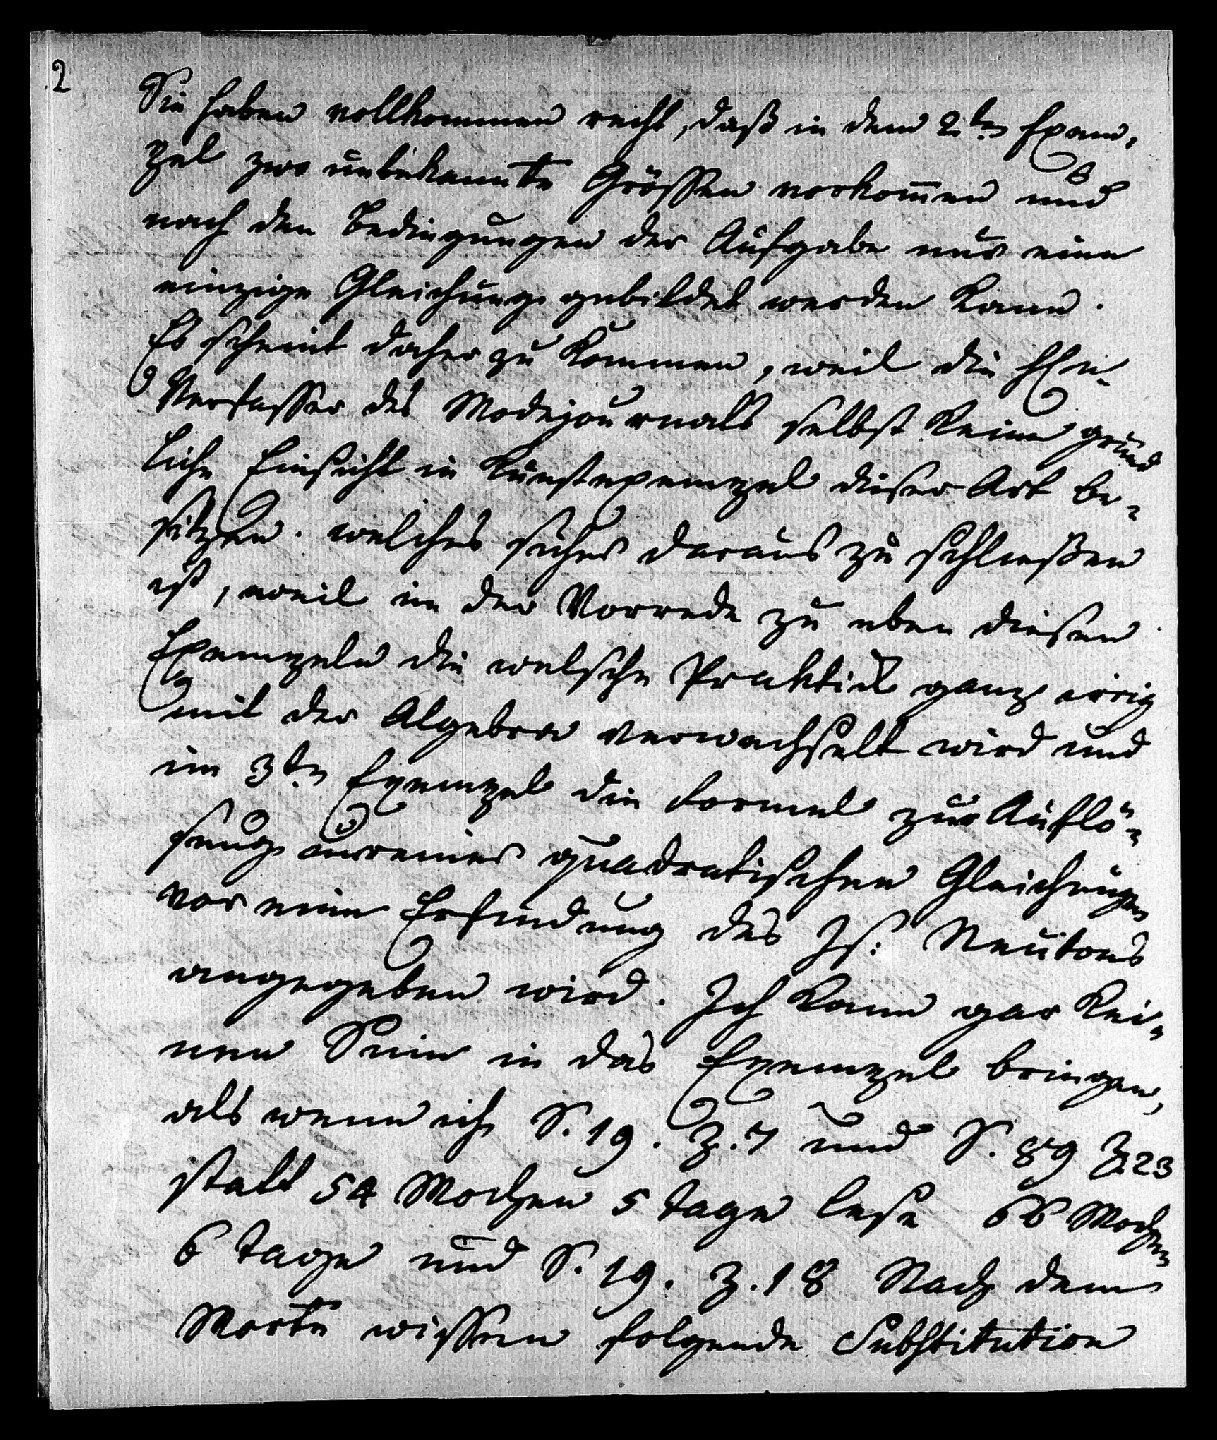 2
Sie haben vollkommen recht, daß in dem 2ten Exem-
pel zwo unbekannte Grössen vorkom̄en und
nach den Bedingungen der Aufgabe nur eine
einzige Gleichung gebildet werden kann.
Es scheint daher zu kommen, weil die HEn.
Verfasser des Modejournals selbst keine gründ
liche Einsicht in Kunstexempel dieser Art be-
sitzen. welches sicher daraus zu schliessen
ist, weil in der Vorrede zu eben diesen
Exempeln die welsche Praktick ganz irrig
mit der Algebra verwechselt wird und
im 3ten Exempel die Formel zur Auflö-
sung unreiner quadratischen Gleichungen
vor eine Erfindung des Js: Neutons
angegeben wird. Ich kann gar kei-
nen Sinn in das Exempel bringen,
als wenn ich S. 19. Z. 7 und S. 89 Z. 23
statt 54 Wochen 5 Tage lese 66 Wochen
6 Tage und S. 19. Z. 18 Nach dem
Worte wissen folgende Substitution